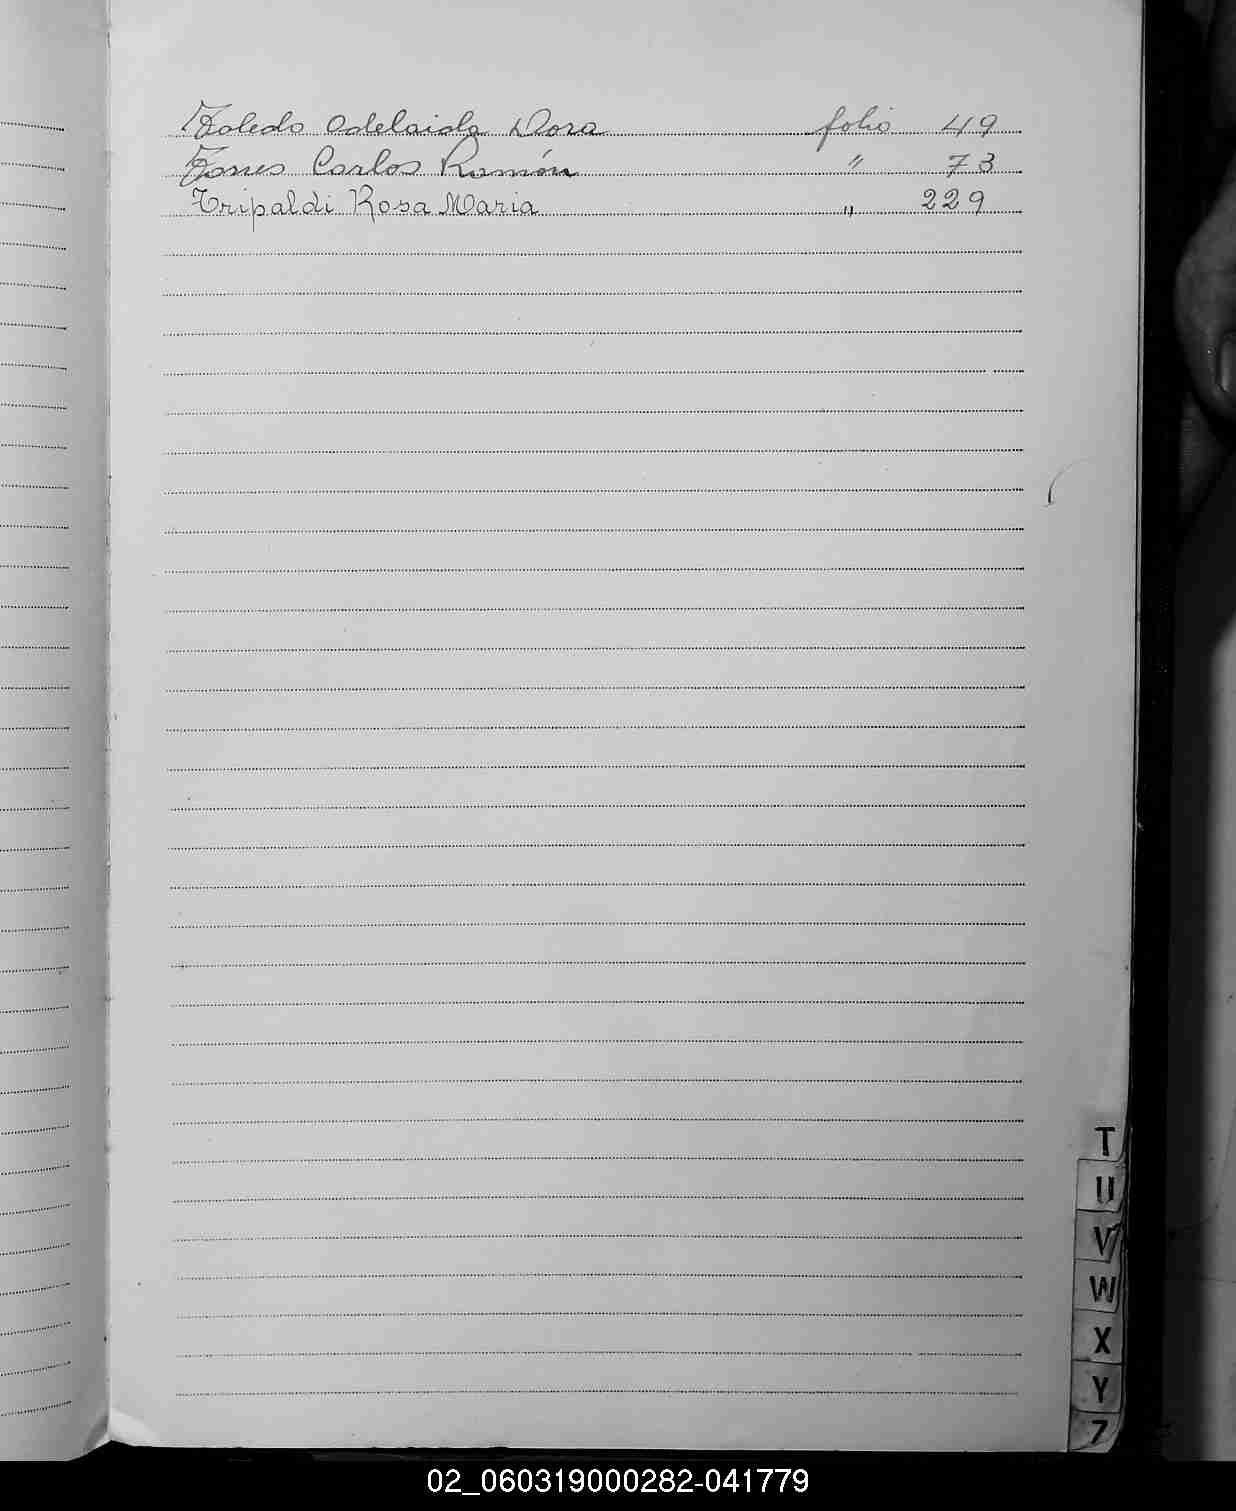 Toledo Adelaida Dora folio 49
Torres Carlos Ramón " 73
Tripaldi Rosa Maria " 229
T
U
V
W
X
Y
Z
02_060319000282-041779